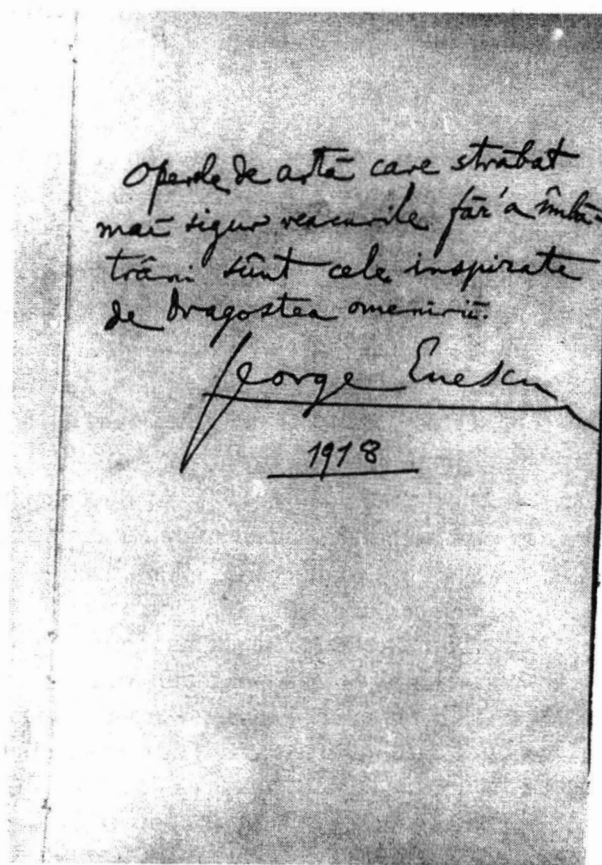 Operele de artă care străbat
mai sigur veacurile făr'a îmbă-
trâni sûnt cele inspirate
de dragostea omenirii.
George Enescu
1918